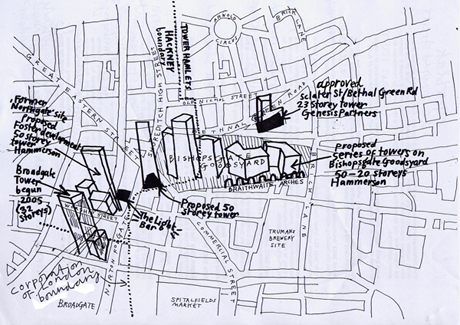 ARNOLD
CIRCUS
BRICK LANE
TOWER HAMLETS
HACKNEY
boundary
GREAT EASTERN STREET
SHOREDITCH HIGH STREET
OLD NICHOL STREET
BETHNAL GREEN ROAD
approved
Sclater St/Bethal Green Rd
23 Storey tower
Genesis Partners
Former
Northgate site
Propose
Foster development
50 storey
tower
Hammerson
BISHOPSGATE
GOODSYARD
BRAITHWAITE ARCHES
proposed
series of towers on
Bishopsgate Goodsyard
50-20 storeys
Hammerson
Broadgate
Tower
begun
2005
(32
Storeys)
The Light
Bar
Proposed 50
Storey tower
COMMERCIAL STREET
BRICK LANE
TRUMANS
BREWERY
SITE
NORTON FOLGATE
corporation
of London
boundary
BROADGATE
SPITALFIELDS
MARKET